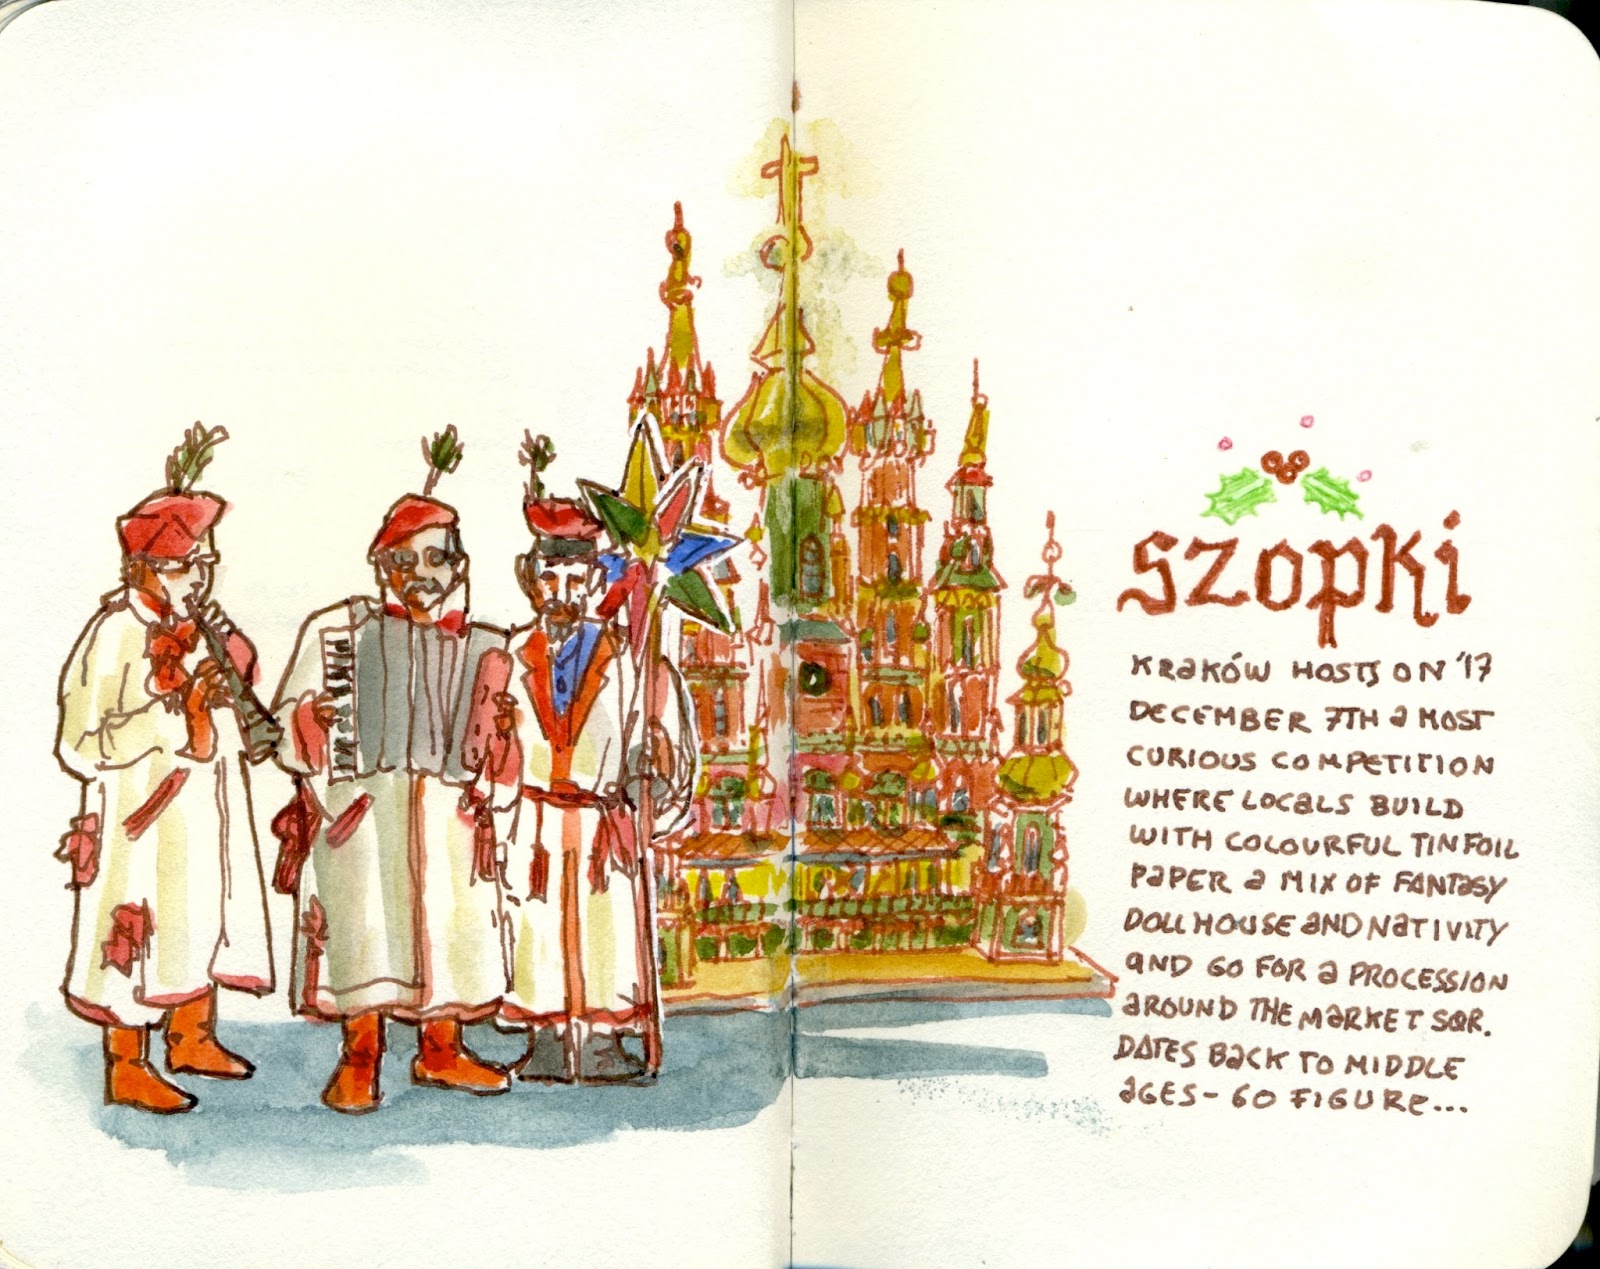 szopki
KRAKÓW HOSTS ON '17
DECEMBER 7TH A MOST
CURIOUS COMPETITION
WHERE LOCALS BUILD
WITH COLOURFUL TINFOIL
PAPER A MIX OF FANTASY
DOLLHOUSE AND NATIVITY
AND GO FOR A PROCESSION
AROUND THE MARKET SQR.
DATES BACK TO MIDDLE
AGES - GO FIGURE...